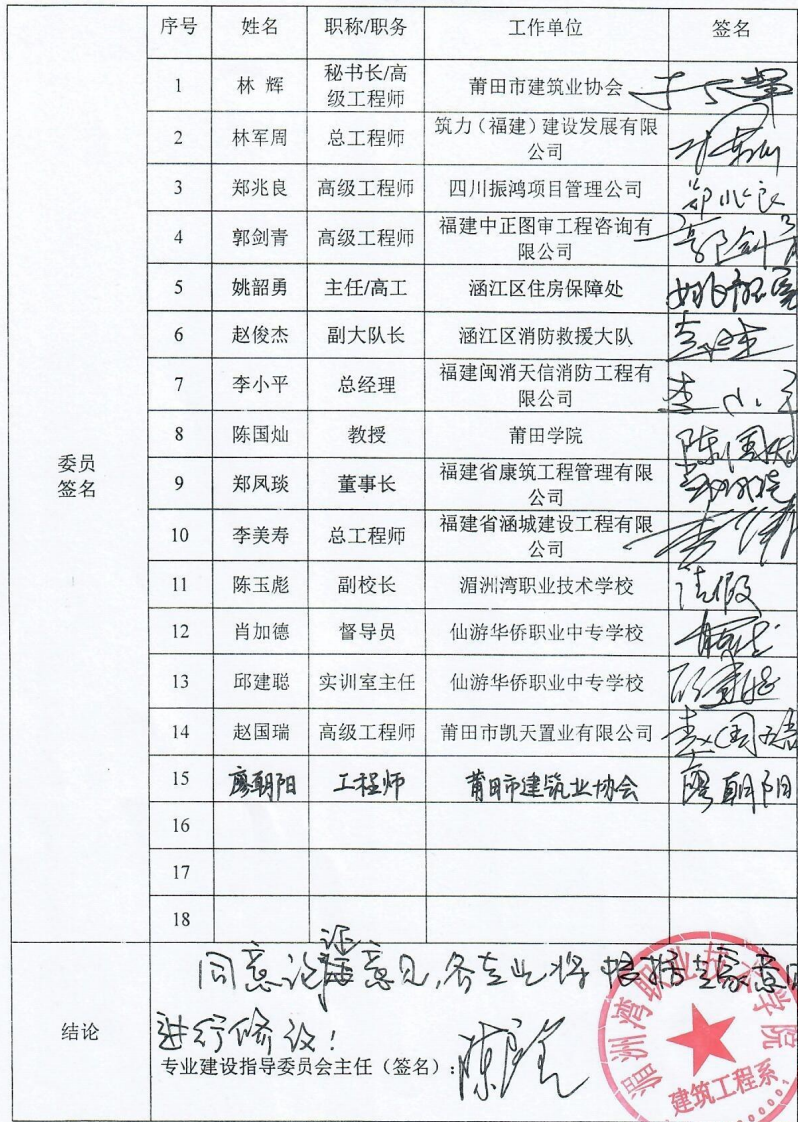 序号 姓名 职称/职务 工作单位 签名
委员
签名
1 林 辉 秘书长/高
级工程师 莆田市建筑业协会
2 林军周 总工程师 筑力（福建）建设发展有限
公司
3 郑兆良 高级工程师 四川振鸿项目管理公司 郑兆良
4 郭剑青 高级工程师 福建中正图审工程咨询有
限公司 郭剑青
5 姚韶勇 主任/高工 涵江区住房保障处 姚韶勇
6 赵俊杰 副大队长 涵江区消防救援大队
7 李小平 总经理 福建闽消天信消防工程有
限公司 李小平
8 陈国灿 教授 莆田学院 陈国灿
9 郑凤琰 董事长 福建省康筑工程管理有限
公司
10 李美寿 总工程师 福建省涵城建设工程有限
公司
11 陈玉彪 副校长 湄洲湾职业技术学校 请假
12 肖加德 督导员 仙游华侨职业中专学校
13 邱建聪 实训室主任 仙游华侨职业中专学校
14 赵国瑞 高级工程师 莆田市凯天置业有限公司 赵国瑞
15 廖朝阳 工程师 莆田市建筑业协会 廖朝阳
16
17
18
结论
同意论证意见,各专业将根据专家意见
进行修改!
专业建设指导委员会主任（签名）:
湄洲湾职业技术学院
建筑工程系